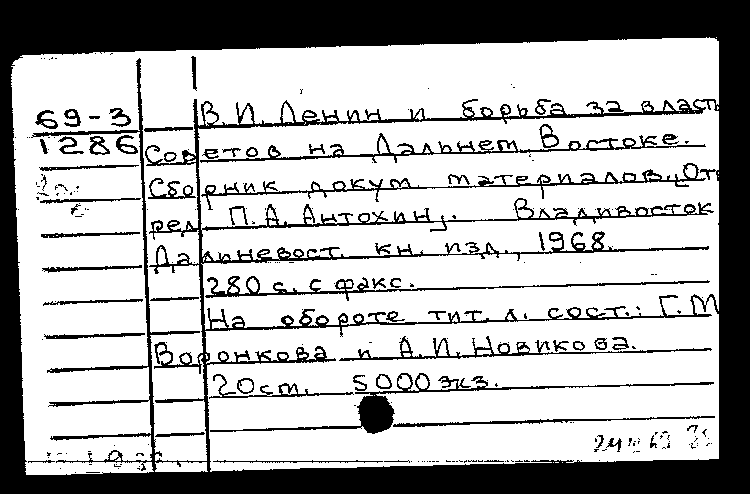 69-3
1286
В.И. Ленин и борьба за власть
Советов на Дальнем Востоке.
Сборник докум. материалов. [Отв.
ред. П.А. Антохин]. Владивосток
Дальневост. кн. изд., 1968.
280 с. с факс.
На обороте тит. л. сост.: Г.М
Воронкова и А.И. Новикова.
20 см. 5000 экз.